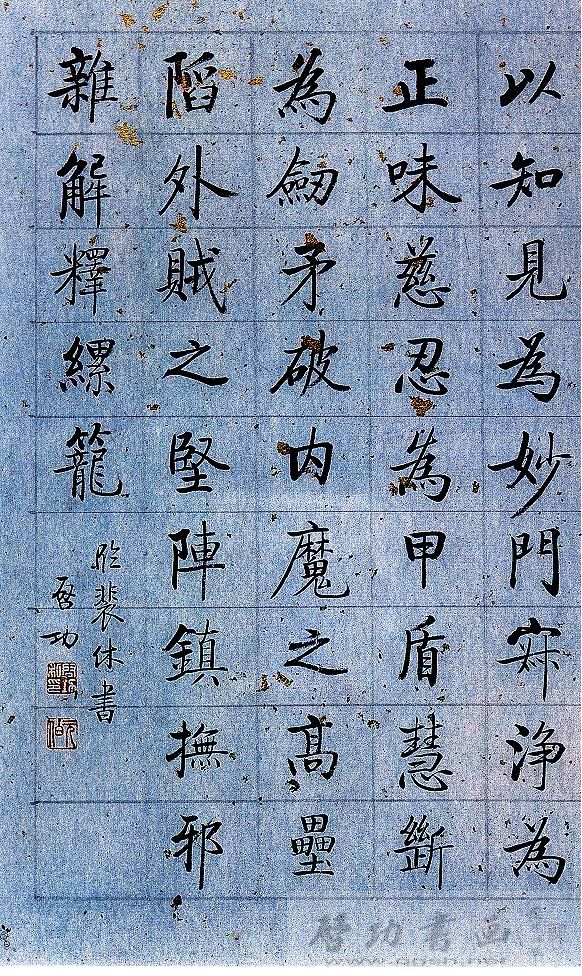 以知見為妙門寂淨為
正味慈忍為甲盾慧斷
為劒矛破内魔之高壘
陷外賊之堅陣鎮撫邪
雜解釋縲籠
臨裴休書
啓功
啓功书画